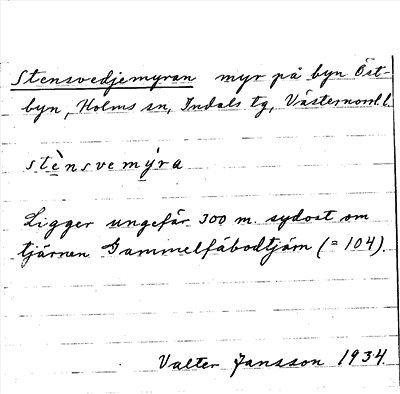 Stensvedjemyran myr på byn Öst-
byn, Holms sn, Indals tg, Västernorrl. l.
stènsvemýra
Ligger ungefär 300 m. sydost om
tjärnen Gammelfäbodtjärn (= 104).
Valter Jansson 1934.